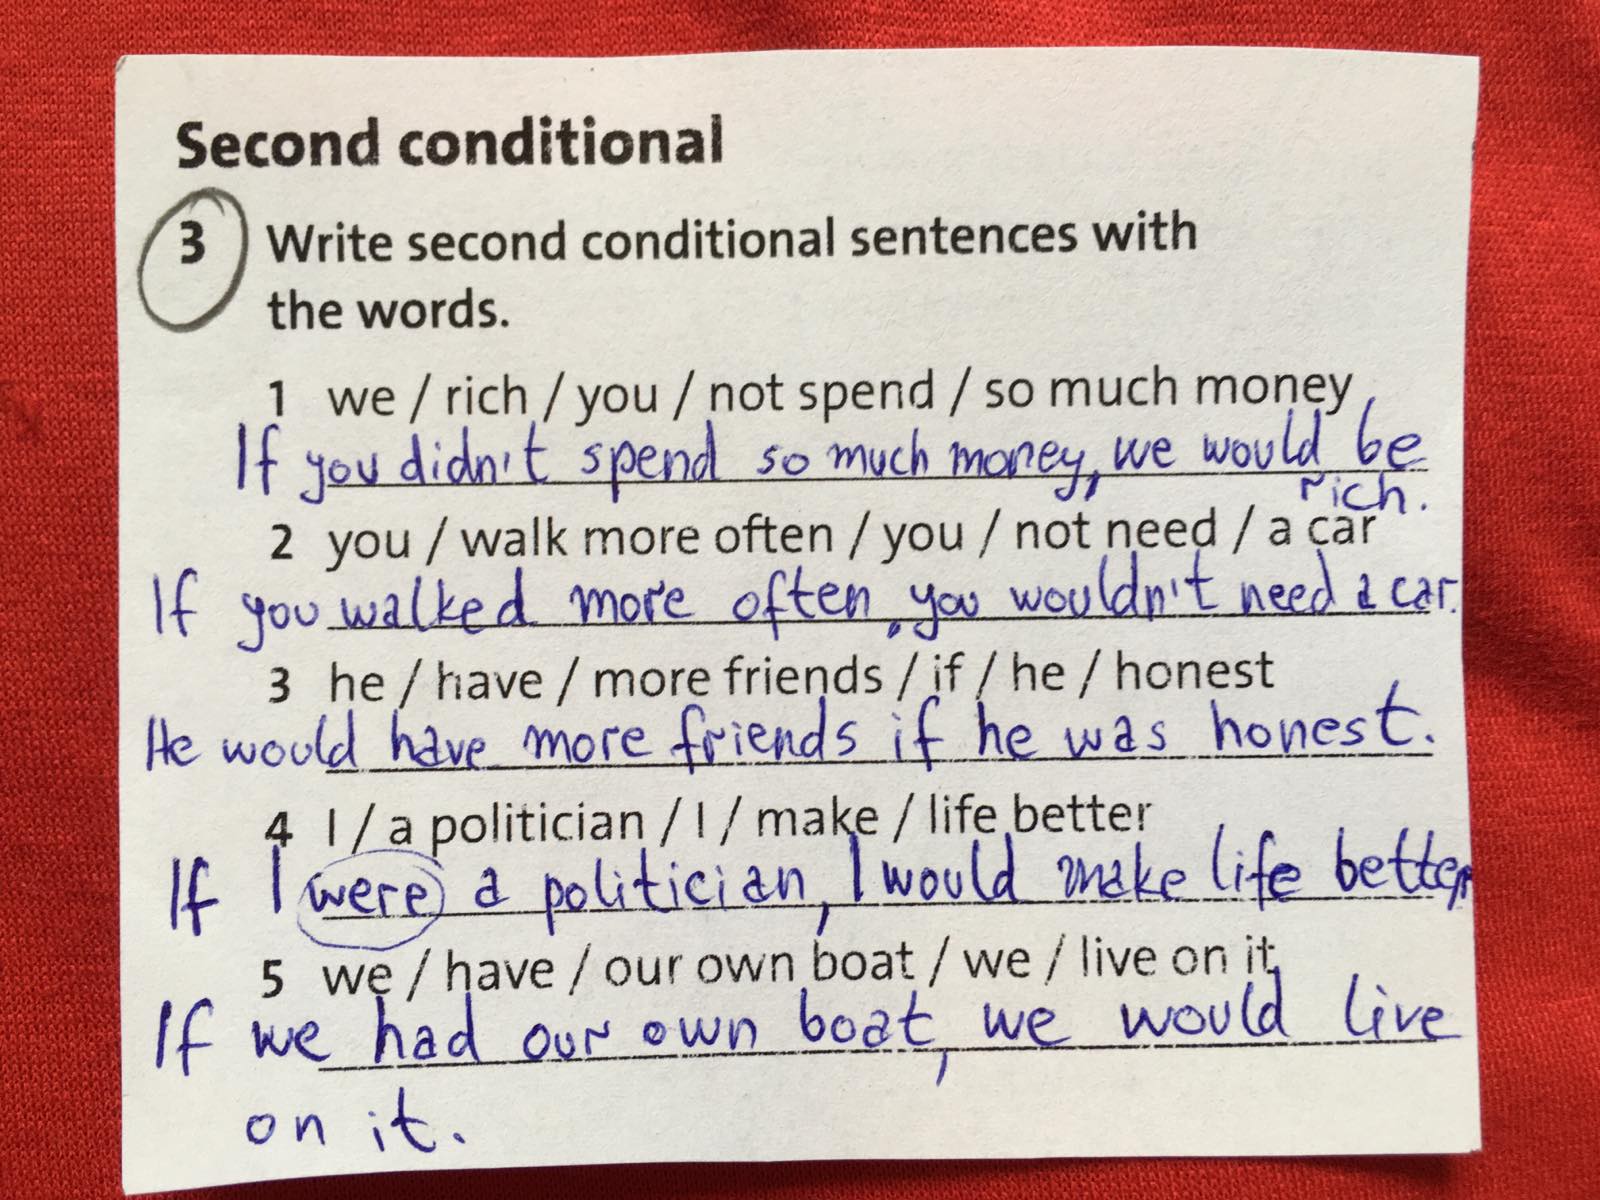 Second conditional
3 Write second conditional sentences with
the words.
1 we / rich / you / not spend / so much money
If you didn't spend so much money, we would be
rich.
2 you / walk more often / you / not need / a car
If you walked more often, you wouldn't need a car.
3 he / have / more friends / if / he / honest
He would have more friends if he was honest.
4 I / a politician / I / make / life better
If I were a politician, I would make life better
5 we / have / our own boat / we / live on it
If we had our own boat, we would live
on it.